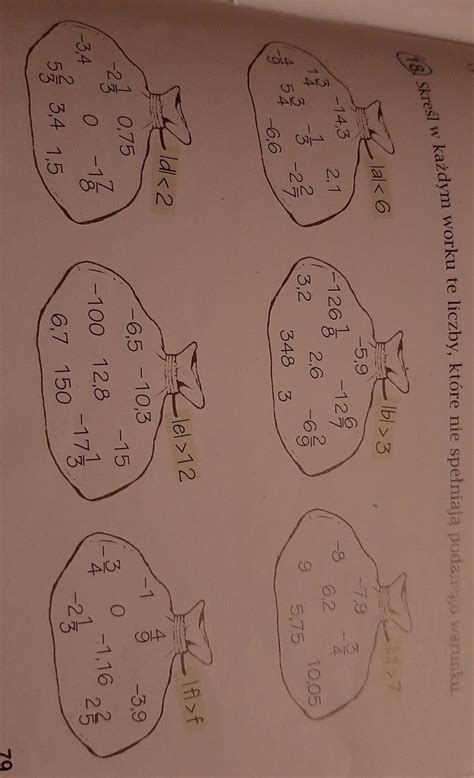 18. Skreśl w każdym worku te liczby, które nie spełniają podanego warunku.
|a|<6
-14,3
1 3/4 -1/3 2,1
-4/9 5 3/4 -2 2/7
-6,6
|b|>3
-5,9
-126 1/8 -12 6/7
2,6
3,2 -6 2/9
348 3
>7
-7,9
-8 -3/4
6,2
9 10,05
5,75
|d|<2
0,75
-2 1/3 -1 7/8
-3,4 0
5 2/3 3,4 1,5
|e|>12
-10,3
-6,5 -15
12,8
-100 -17 1/3
150
6,7
|f|>f
-1 4/9 -3,9
0 -1,16
-3/4 2 2/5
-2 1/3
79